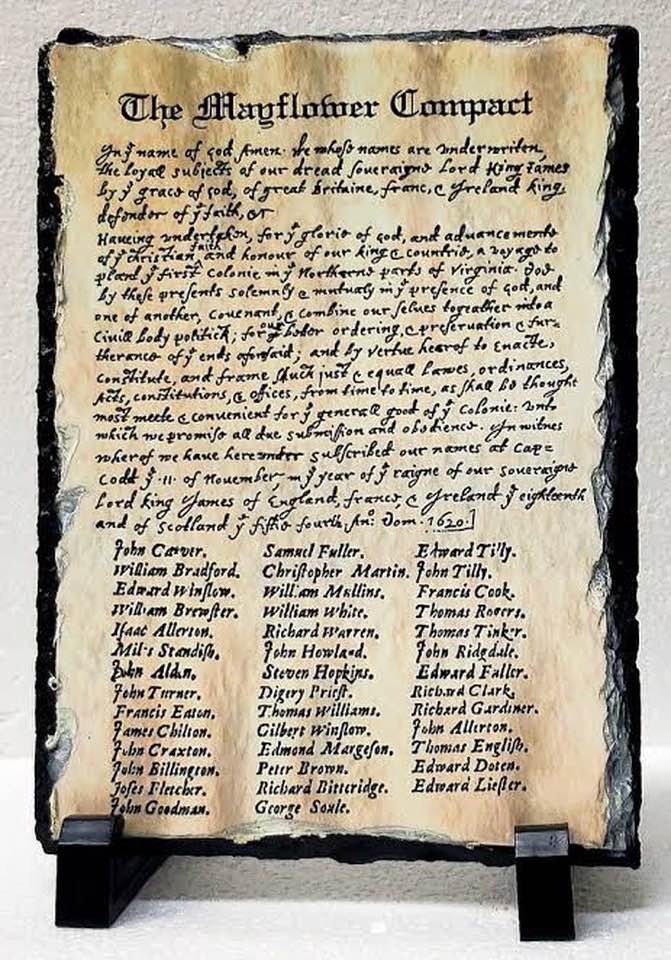 The Mayflower Compact
In yͤ name of god Amen. We whose names are underwriten,
the loyall subjects of our dread soveraigne Lord King James
by yͤ grace of god, of great Britaine, franc, & Ireland king,
defender of yͤ faith, &c
Haveing undertaken, for yͤ glorie of god, and advancemente
of yͤ christian faith and honour of our king & countrie, a voyage to
plant yͤ first colonie in yͤ Northerne parts of Virginia. Doe
by these presents solemnly & mutualy in yͤ presence of god, and
one of another, covenant, & combine our selves togeather into a
Civill body politick; for our beter ordering, & preservation & fur=
therance of yͤ ends aforesaid; and by vertue hearof to Enacte,
constitute, and frame shuch just & equall lawes, ordinances,
Acts, constitutions, & offices, from time to time, as shall be thought
most meete & convenient for yͤ generall good of yͤ Colonie: Unto
which we promise all due submission and obedience. In witnes
wherof we have hereunder subscribed our names at Cap=
Codd yͤ .11. of November, in yͤ year of yͤ raigne of our soveraigne
Lord king James of England, france, & Ireland yͤ eighteenth
and of Scotland yͤ fiftie fourth. Anº: Dom. 1620.]
John Carver. Samuel Fuller. Edward Tilly.
William Bradford. Christopher Martin. John Tilly.
Edward Winslow. William Mullins. Francis Cook.
William Brewster. William White. Thomas Rogers.
Isaac Allerton. Richard Warren. Thomas Tinker.
Miles Standish. John Howland. John Ridgdale.
John Alden. Steven Hopkins. Edward Fuller.
John Turner. Digery Priest. Richard Clark.
Francis Eaton. Thomas Williams. Richard Gardiner.
James Chilton. Gilbert Winslow. John Allerton.
John Craxton. Edmond Margeson. Thomas English.
John Billington. Peter Brown. Edward Doten.
Joses Fletcher. Richard Bitteridge. Edward Liester.
John Goodman. George Soule.